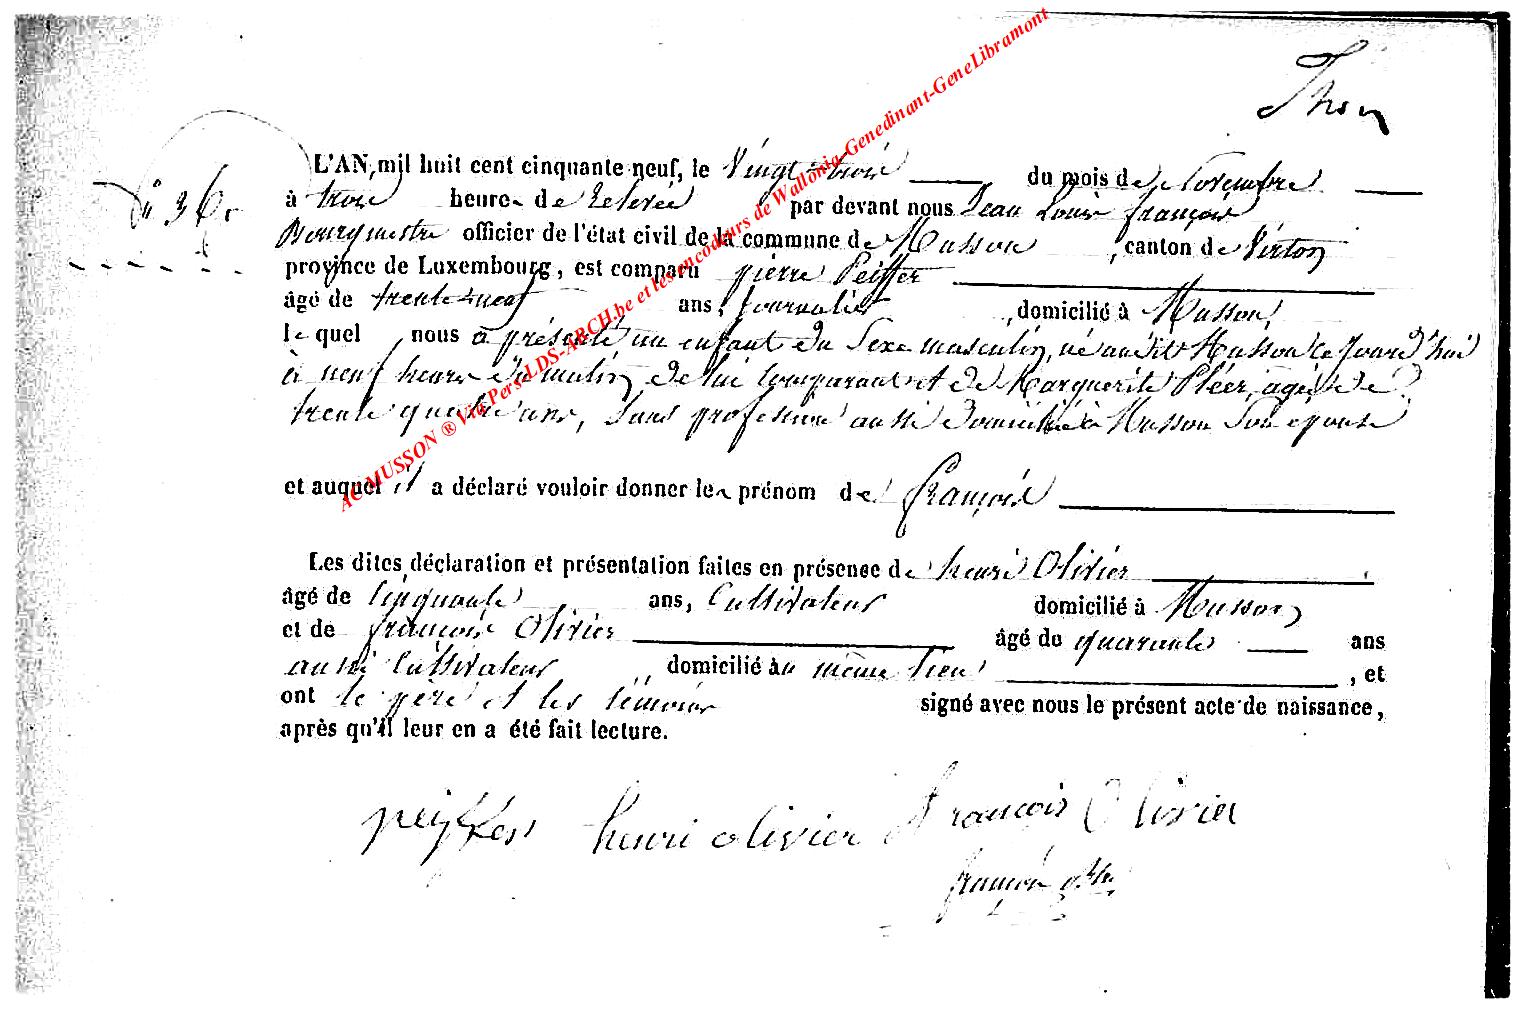 Thon
N° 36.
L'AN mil huit cent cinquante neuf, le Vingt-trois du mois de Novembre
à trois heures de relevée par devant nous Jean Louis françois
Bourgmestre officier de l'état civil de la commune de Musson, canton de Virton
province de Luxembourg, est comparu pierre Peiffer
âgé de trente-neuf ans, journalier, domicilié à Musson,
lequel nous a présenté un enfant du Sexe masculin, né audit Musson ce jourd'hui
à neuf heures du matin, de lui comparant et de Marguerite Pléer, agée de
trente quatre ans, Sans profession aussi domiciliée à Musson Son epouse
et auquel il a déclaré vouloir donner les prénom de françois
Les dites déclaration et présentation faites en présence de henri Olivier
âgé de Cinquante ans, Cultivateur domicilié à Musson
et de françois Olivier âgé de quarante ans
aussi Cultivateur domicilié au même lieu, et
ont le père et les témoins signé avec nous le présent acte de naissance,
après qu'il leur en a été fait lecture.
peiffer henri olivier françois Olivier
françois
AC MUSSON ® Via Pers-LDS-ARCH.be et les encodeurs de Wallonia-Genedinant-GeneLibramont